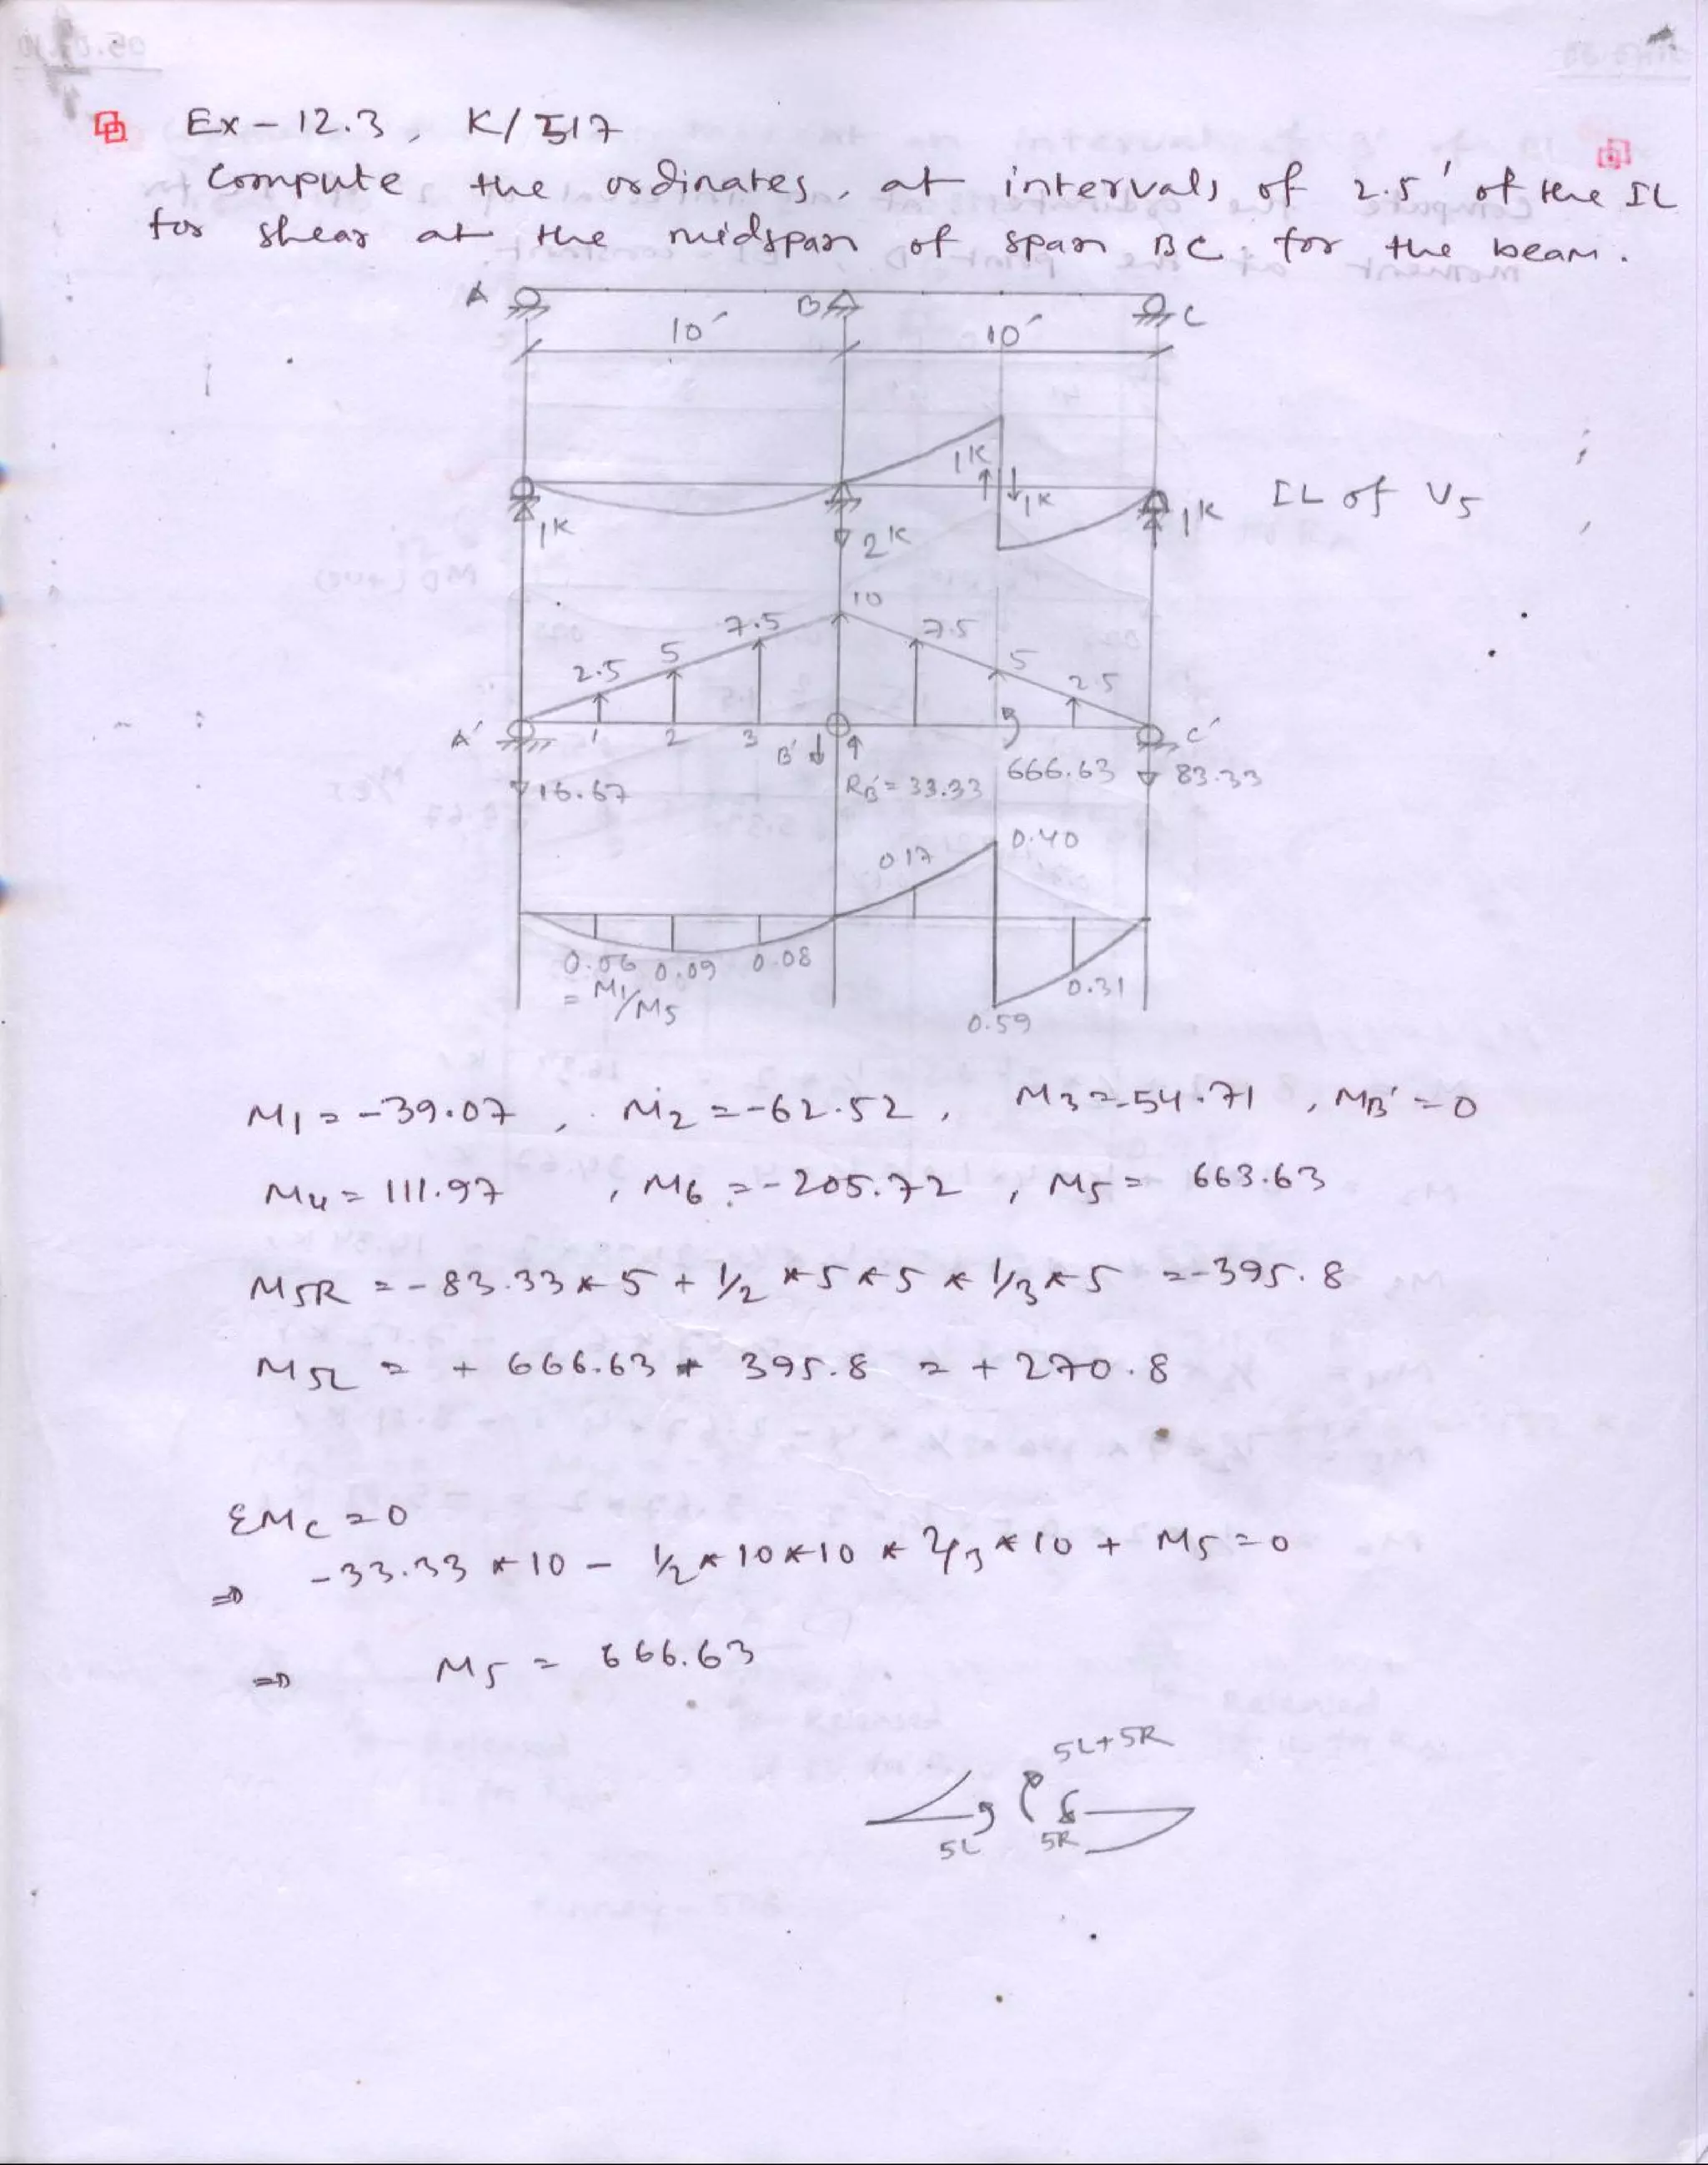 Ex-12.3, K/517
Compute the ordinates, at intervals of 2.5' of the IL
for shear at the midspan of span BC for the beam.
A B C
10' 10'
1K 1K
1K 2K 1K IL of V5
10
7.5 7.5
5 5
2.5 2.5
A' 1 2 3 B' C'
16.67 RB' = 33.33 666.63 83.33
0.40
0.17
0.06 0.09 0.08 0.31
= M1/M5
0.59
M1 = -39.07, M2 = -62.52, M3 = -54.71, MB' = 0
M4 = 111.97, M6 = -205.72, M5 = 663.63
M5R = -83.33 * 5 + 1/2 * 5 * 5 * 1/3 * 5 = -395.8
M5L = + 666.63 + 395.8 = +270.8
ΣMc = 0
⇒ -33.33 * 10 - 1/2 * 10 * 10 * 2/3 * 10 + M5 = 0
⇒ M5 = 666.63
5L+5R
5L 5R